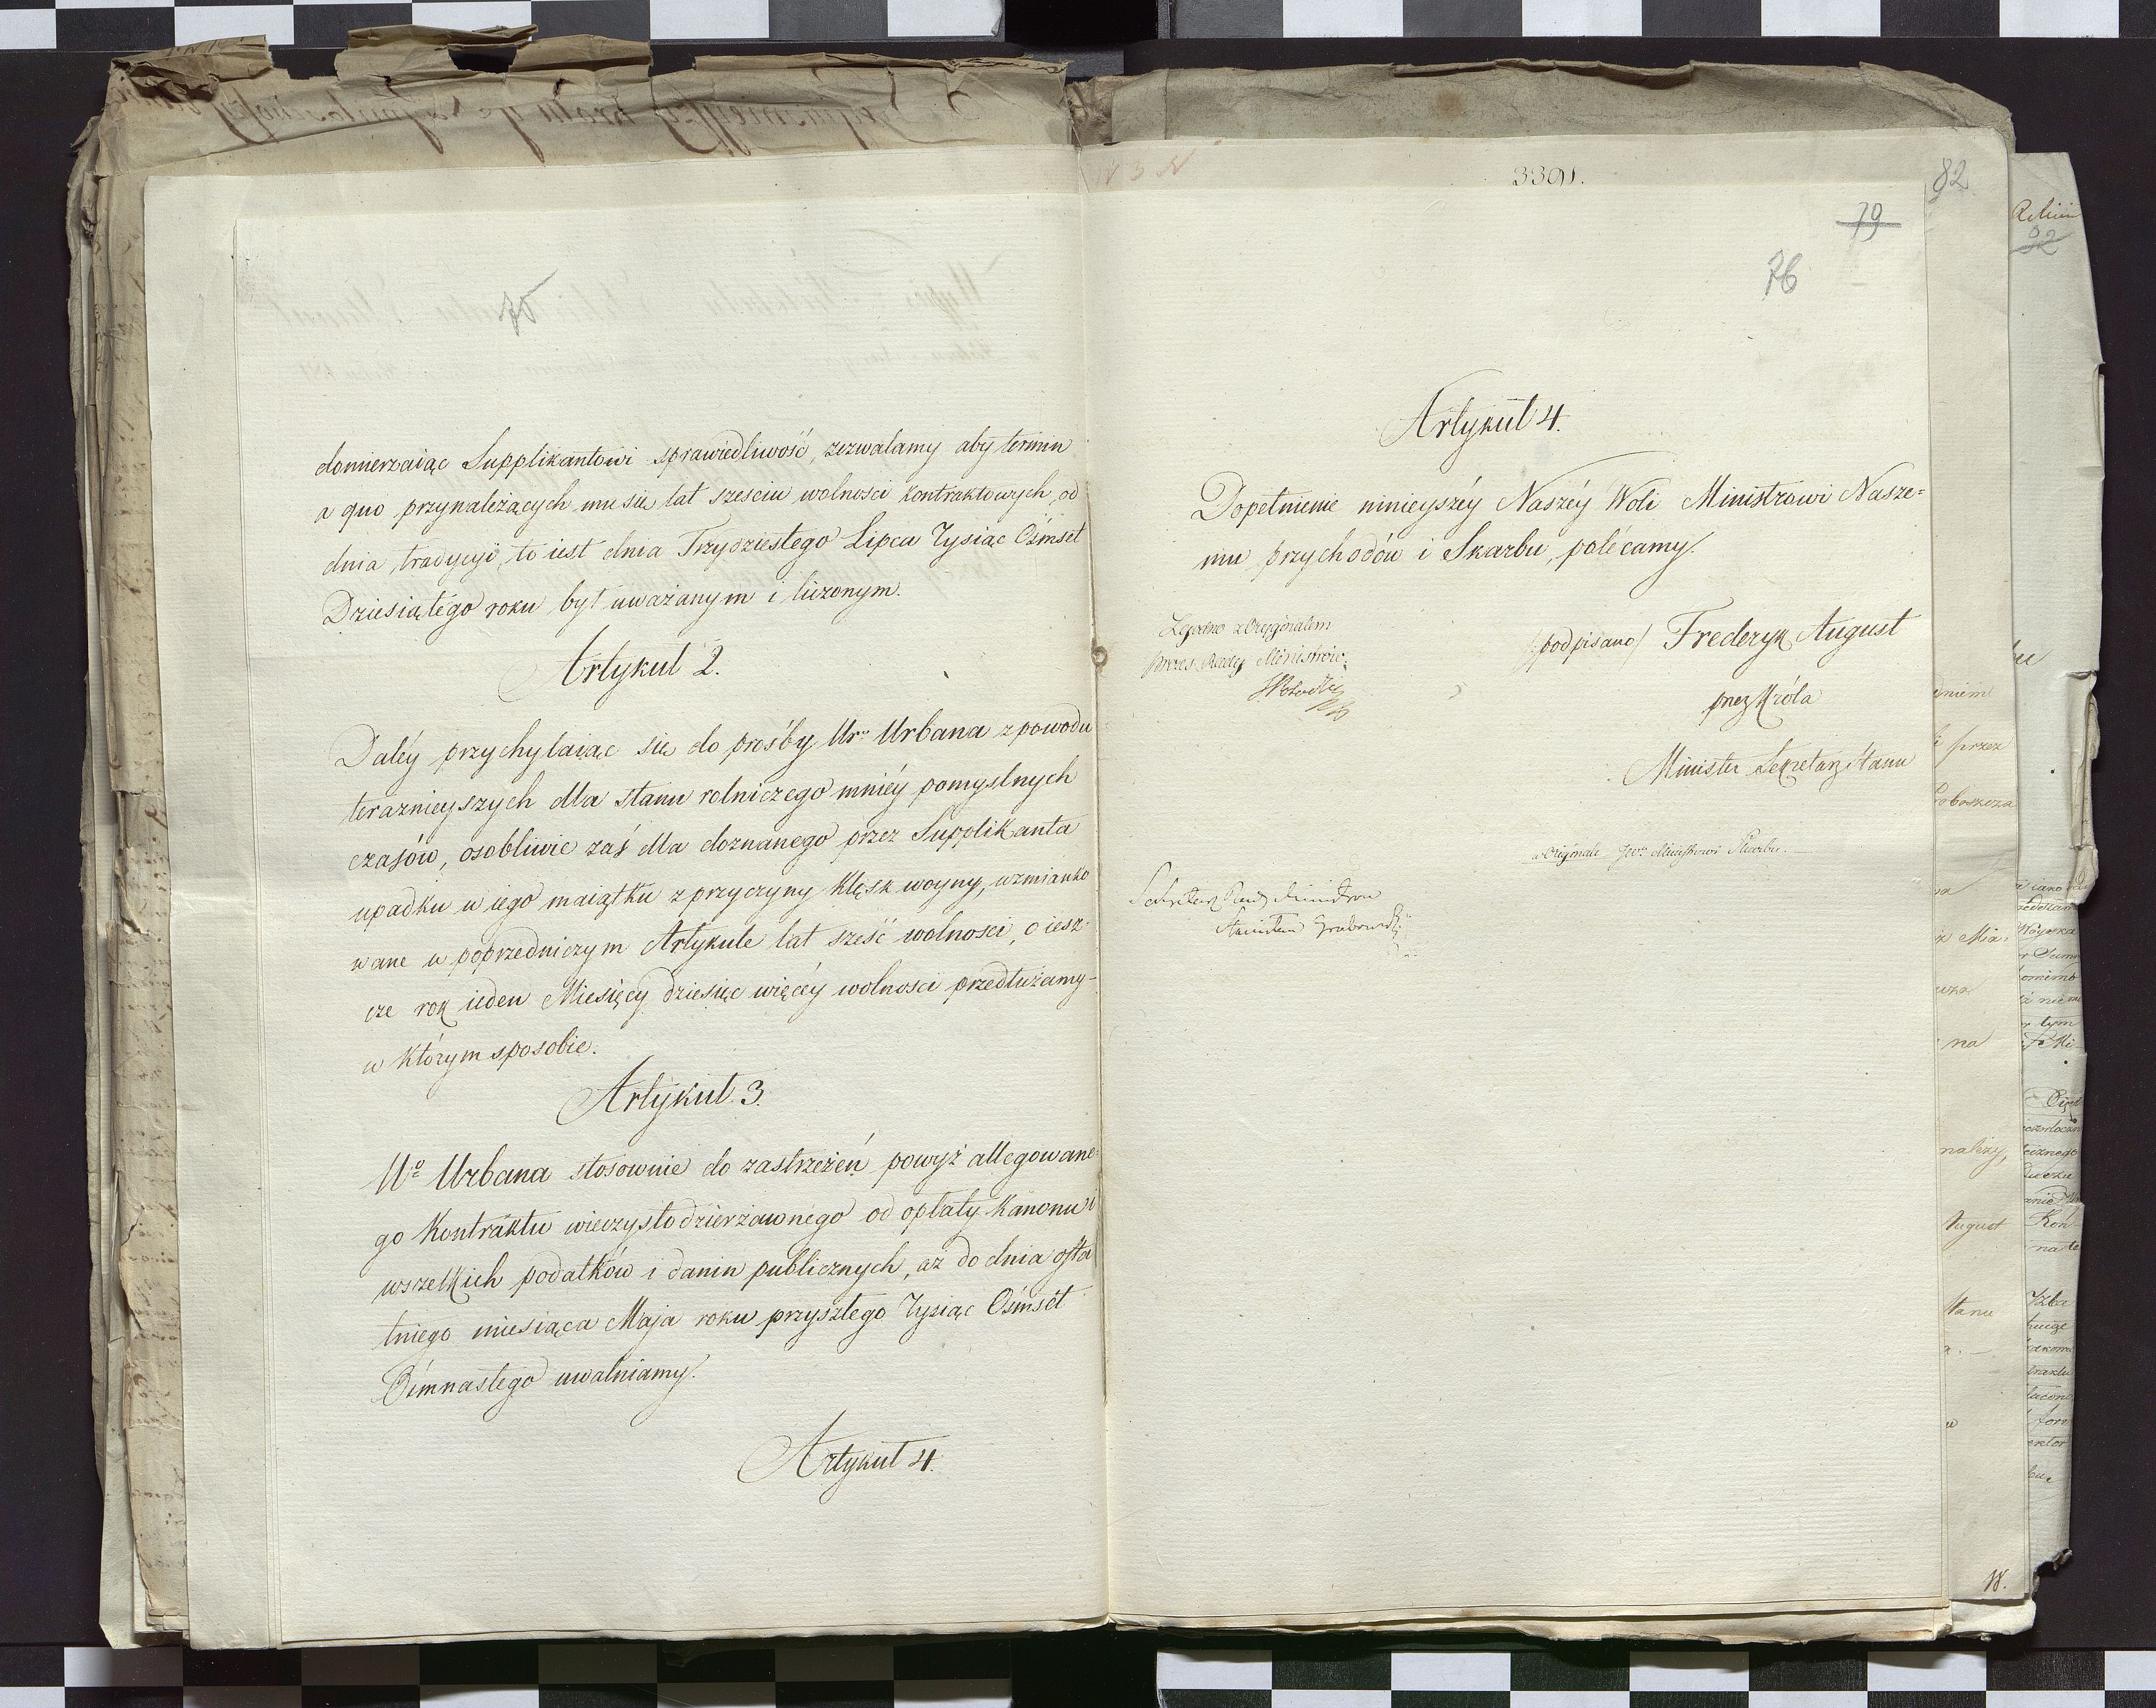 75
domierzaiąc Supplikantowi sprawiedliwość, zezwalamy aby termin
a quo przynależących mu się lat sześciu wolności kontraktowych, od
dnia tradycyi, to iest dnia Trzydziestego Lipca Tysiąc Ośmset
Dziesiątego roku był uważanym i liczonym.
Artykuł 2.
Daléy przychylaiąc się do prośby Ur. Urbana z powodu
teraznieyszych dla stanu rolniczego mniéy pomyslnych
czasów, osobliwie zaś dla doznanego przez Supplikanta
upadku w iego maiątku z przyczyny klęsk woyny, wzmianko
wane w poprzedniczym Artykule lat sześć wolności, o iesz-
cze rok ieden Miesięcy dziesięć więcéy wolności przedłużamy-
w którym sposobie.
Artykuł 3.
Uo Urbana stosownie do zastrzeżeń powyż allegowane-
go Kontraktu wieczysto dzierżawnego od opłaty kanonu i
wszelkich podatków i danin publicznych, aż do dnia osta
tniego miesiąca Maja roku przyszłego Tysiąc Ośmset
Ośmnastego uwalniamy.
Artykuł 4.
3391.
82
79
76
Artykuł 4.
Dopełnienie ninieyszéy Naszéy Woli Ministrowi Nasze-
mu przychodów i Skarbu, polécamy.
Zgodno z Oryginałem
Prezes Rady Ministrów
/podpisano/ Fryderyk August
przez Króla
Minister Sekretarz Stanu
w Oryginale Ministrowi Skarbu.
Sekretarz Rady Ministrów
Stanisław Grabowski